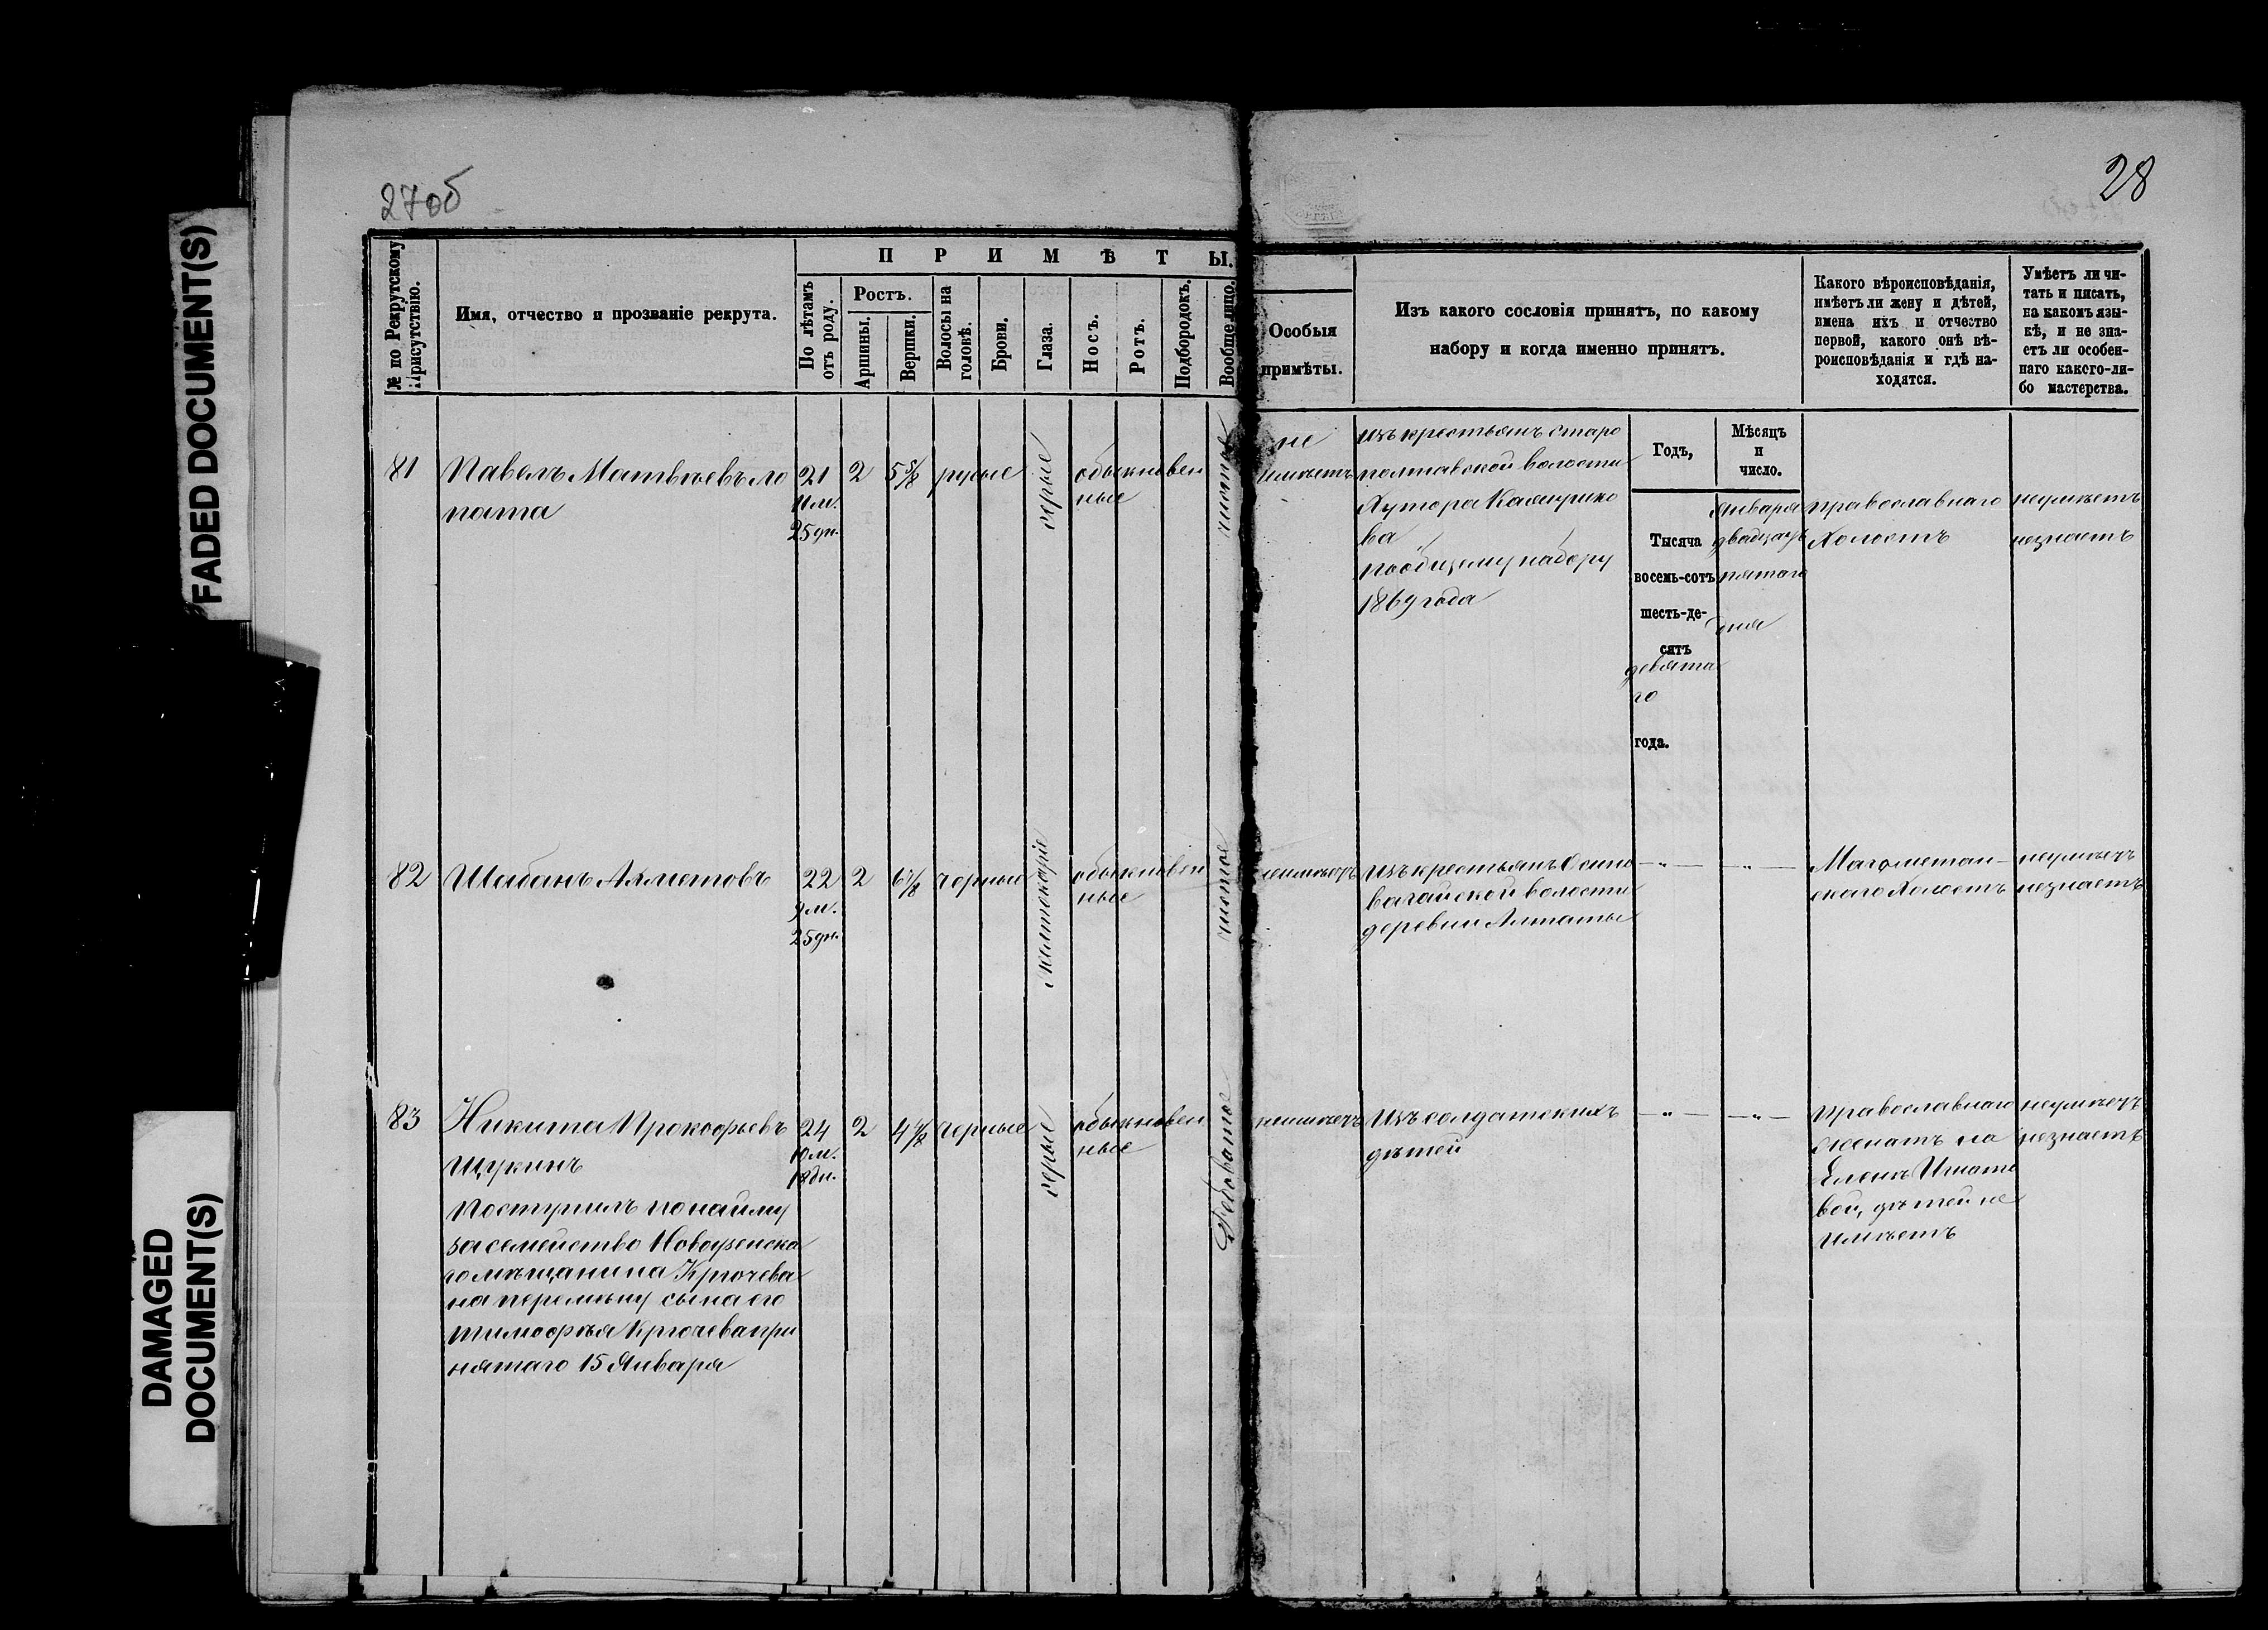 FADED DOCUMENT(S)
DAMAGED
DOCUMENT(S)
27об
28
№ по Рекрутскому
Присутствію.
Имя, отчество и прозваніе рекрута.
ПРИМѢТЫ.
По лѣтамъ
отъ роду.
Ростъ.
Аршины.
Вершки.
Волосы на
головѣ.
Брови.
Глаза.
Носъ.
Ротъ.
Подбородокъ.
Вообще лицо.
Особыя
примѣты.
Изъ какого сословія принятъ, по какому
набору и когда именно принятъ.
Какого вѣроисповѣданія,
имѣетъ ли жену и дѣтей,
имена ихъ и отчество
первой, какого онѣ вѣ-
роисповѣданія и гдѣ на-
ходятся.
Умѣетъ ли чи-
тать и писать,
на какомъ язы-
кѣ, и не зна-
етъ ли особен-
наго какого-ли-
бо мастерства.
81
Павелъ Матвѣевъ Ло
пата
21
11 м.
25 дн.
2
5 5/8
русые
серые
обыкновен
ные
чистое
не
имѣетъ
изъ крестьянъ Старо
полтавской волости
Хутора
ва
по общему набору
1869 года
Годъ,
Мѣсяцъ
и
число.
Тысяча
восемь-сотъ
шесть-де-
сятъ
девята
го
года.
Января
двадцать
пятаго
дня
православнаго
Холостъ
неумѣетъ
незнаетъ
82
Шабанъ Ахметовъ
22
9 м.
25 дн.
2
6 1/8
черные
желтокаріе
обыкновен
ные
чистое
неимѣетъ
Изъ крестьянъ Осино
вагайской волости
деревни Алтаты
— „ —
— „ —
Магометан-
скаго Холостъ
неумѣетъ
незнаетъ
83
Никита Прокофьевъ
Щукинъ
Поступилъ по найму
за семейство Новоузенска
го мѣщанина Крючева
на перемѣну сына его
Тимофѣя Крючева при
нятаго 15 Января
24
10 м.
18 дн.
2
4 4/8
черные
серые
обыкновен
ные
Рябоватое
неимѣетъ
Изъ солдатскихъ
дѣтей
— „ —
— „ —
Православнаго
женатъ на
Еленѣ Игнате
вой, дѣтей не
имѣетъ
неумѣетъ
незнаетъ